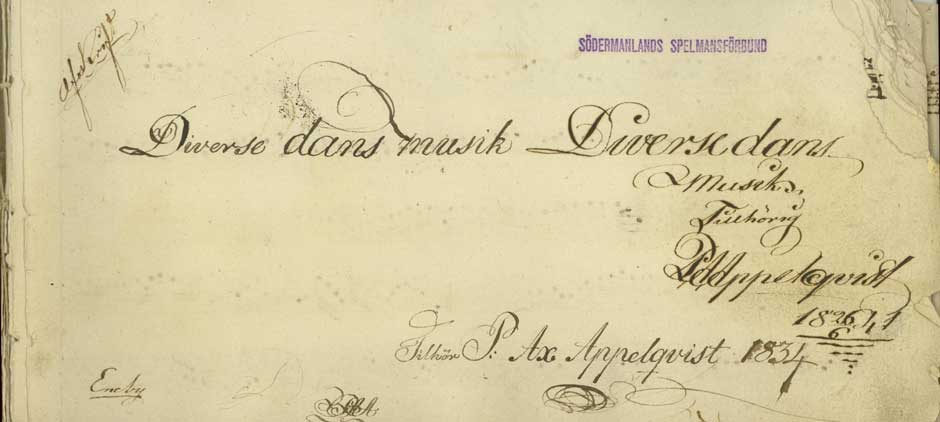 SÖDERMANLANDS SPELMANSFÖRBUND
Diverse dans musik Diverse dans
Musik
Tillhörig
PAAppelqvist
Tilhör P: Ax Appelqvist 1834
Eneby